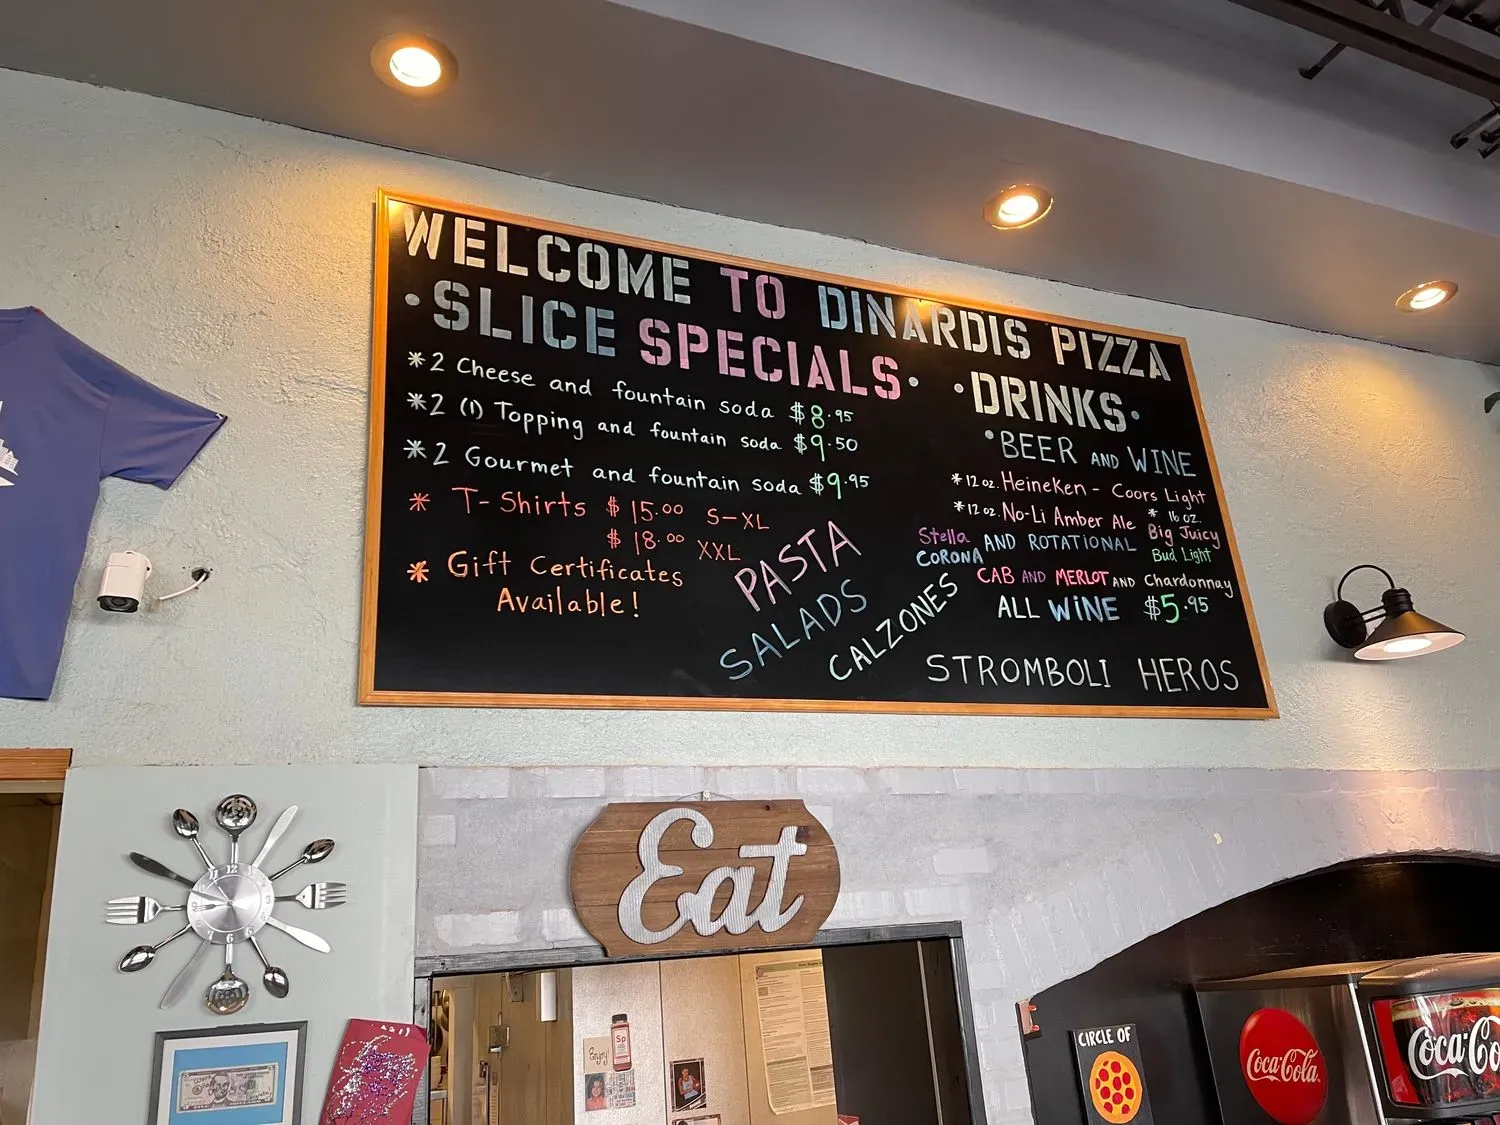 WELCOME TO DINARDIS PIZZA
·SLICE SPECIALS·
*2 Cheese and fountain soda $8.95
*2 (1) Topping and fountain soda $9.50
*2 Gourmet and fountain soda $9.95
* T-Shirts $15.00 S-XL
$18.00 XXL
* Gift Certificates
Available!
PASTA
SALADS
CALZONES
·DRINKS·
·BEER AND WINE
*12 oz. HeineKen - Coors Light
*12 oz. No-Li Amber Ale
* 16 oz.
Big Juicy
Bud Light
Stella AND ROTATIONAL
CORONA
CAB AND MERLOT AND Chardonnay
ALL WiNE $5.95
STROMBOLI HEROS
Eat
12
3
6
7
Enjoy
Sp
CIRCLE OF
Coca-Cola
Coca-Co